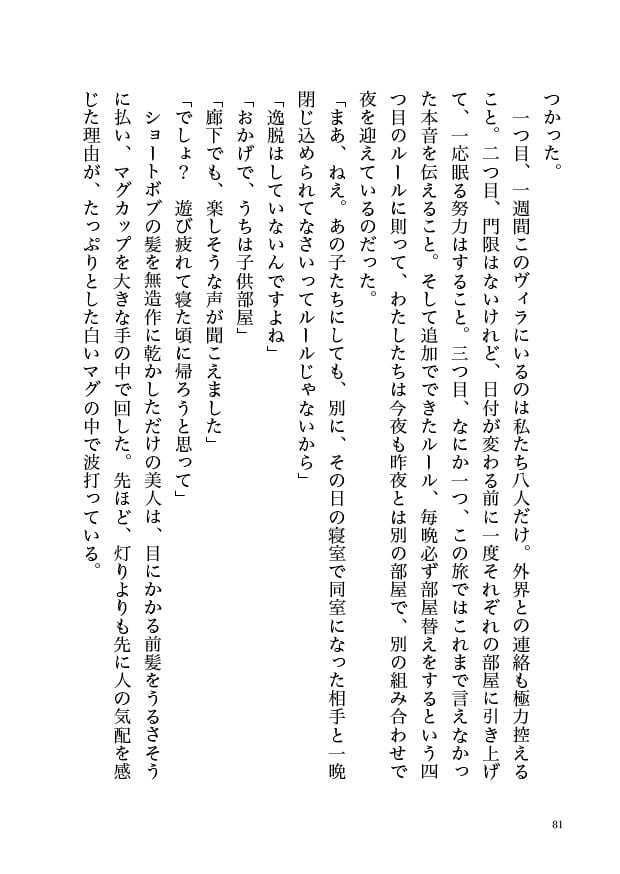 つかった。
　一つ目、一週間このヴィラにいるのは私たち八人だけ。外界との連絡も極力控える
こと。二つ目、門限はないけれど、日付が変わる前に一度それぞれの部屋に引き上げ
て、一応眠る努力はすること。三つ目、なにか一つ、この旅ではこれまで言えなかっ
た本音を伝えること。そして追加でできたルール、毎晩必ず部屋替えをするという四
つ目のルールに則って、わたしたちは今夜も昨夜とは別の部屋で、別の組み合わせで
夜を迎えているのだった。
「まあ、ねえ。あの子たちにしても、別に、その日の寝室で同室になった相手と一晩
閉じ込められてなさいってルールじゃないから」
「逸脱はしていないんですよね」
「おかげで、うちは子供部屋」
「廊下でも、楽しそうな声が聞こえました」
「でしょ？　遊び疲れて寝た頃に帰ろうと思って」
　ショートボブの髪を無造作に乾かしただけの美人は、目にかかる前髪をうるさそう
に払い、マグカップを大きな手の中で回した。先ほど、灯りよりも先に人の気配を感
じた理由が、たっぷりとした白いマグの中で波打っている。
81